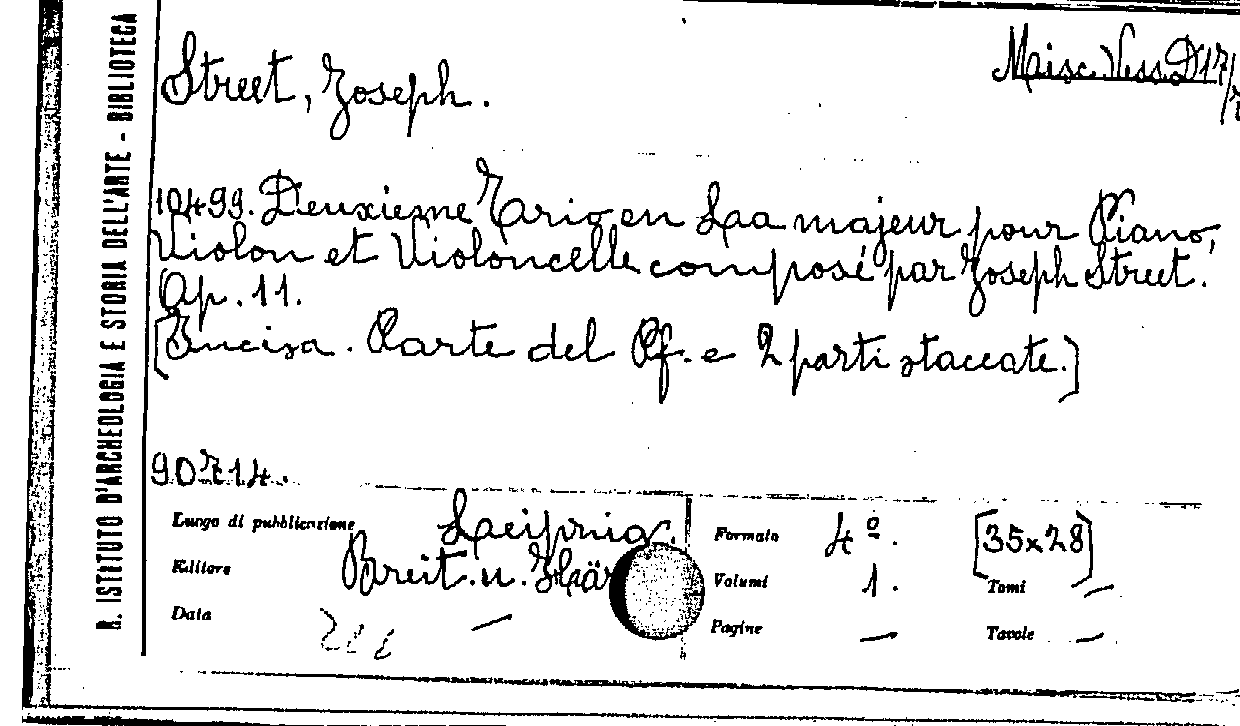 R. ISTITUTO D'ARCHEOLOGIA E STORIA DELL'ARTE - BIBLIOTECA
Street, Joseph.
Misc. Vess. D 17/
10499. Deuxiesne Trio en Laa majeur pour Piano,
Violon et Violoncelle composé par Joseph Street.
Op. 11.
[Incisa. Parte del Pf. e 2 parti staccate.]
90714.
Luogo di pubblicazione Leipzig.
Editore Breit. u. Här
Data —
Formato 4º. [35x28]
Volumi 1. Tomi —
Pagine — Tavole —